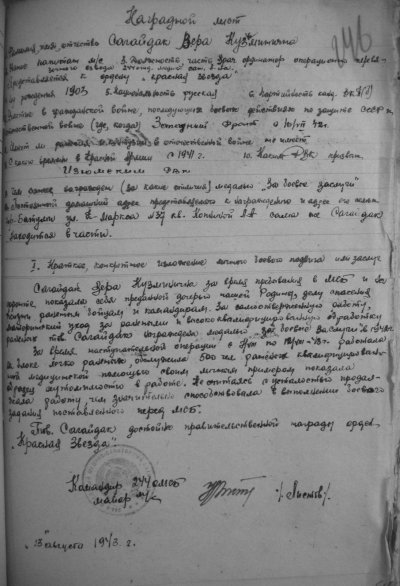 Наградной лист
Фамилия, имя, отчество Сагайдак Вера Кузьминична
Звание капитан м/с 3. Должность, часть Врач ординатор операционно перевя-
зочного взвода
Представляется к ордену "Красная Звезда"
рождения 1903 5. Национальность русская 6. Партийность канд. ВКП(б)
Участие в гражданской войне, последующих боевых действиях по защите СССР и
отечественной войне (где, когда) Западный Фронт с
Имеет ли ранения и контузии в отечественной войне не имеет
С какого времени в Красной Армии с 1941 г. 10. Каким РВК призван
Изюмским РВК
Чем ранее награжден (за какие отличия) медалью "За боевые заслуги"
Постоянный домашний адрес представляемого к награждению и адрес его семьи
Батуми ул. К-Маркса №37 кв. сама же Сагайдак
находится в части.
I. Краткое, конкретное изложение личного боевого подвига или заслуг
Сагайдак Вера Кузьминична за время пребывания в МСБ и на
фронте, показала себя преданной дочерью нашей Родины, делу спасения
жизни раненым бойцам и командирам. За самоотверженную работу,
материнский уход за ранеными и высококвалифицированную обработку
раненых тов. Сагайдак награждена медалью "За боевые заслуги" в 1942 г.
За время наступательной операции с по работала
в блоке легко раненых обслужила 500 чел раненых квалифицирован-
ной медицинской помощью своим личным примером показала
образец в работе. Не считаясь с усталостью продол-
жала работу чем значительно способствовала в выполнении боевого
задания поставленного перед МСБ.
Тов. Сагайдак достойна правительственной награды орден
"Красная Звезда"
Командир 244 ОМСБ
майор м/с /Листов/.
"13" августа 1943 г.
246